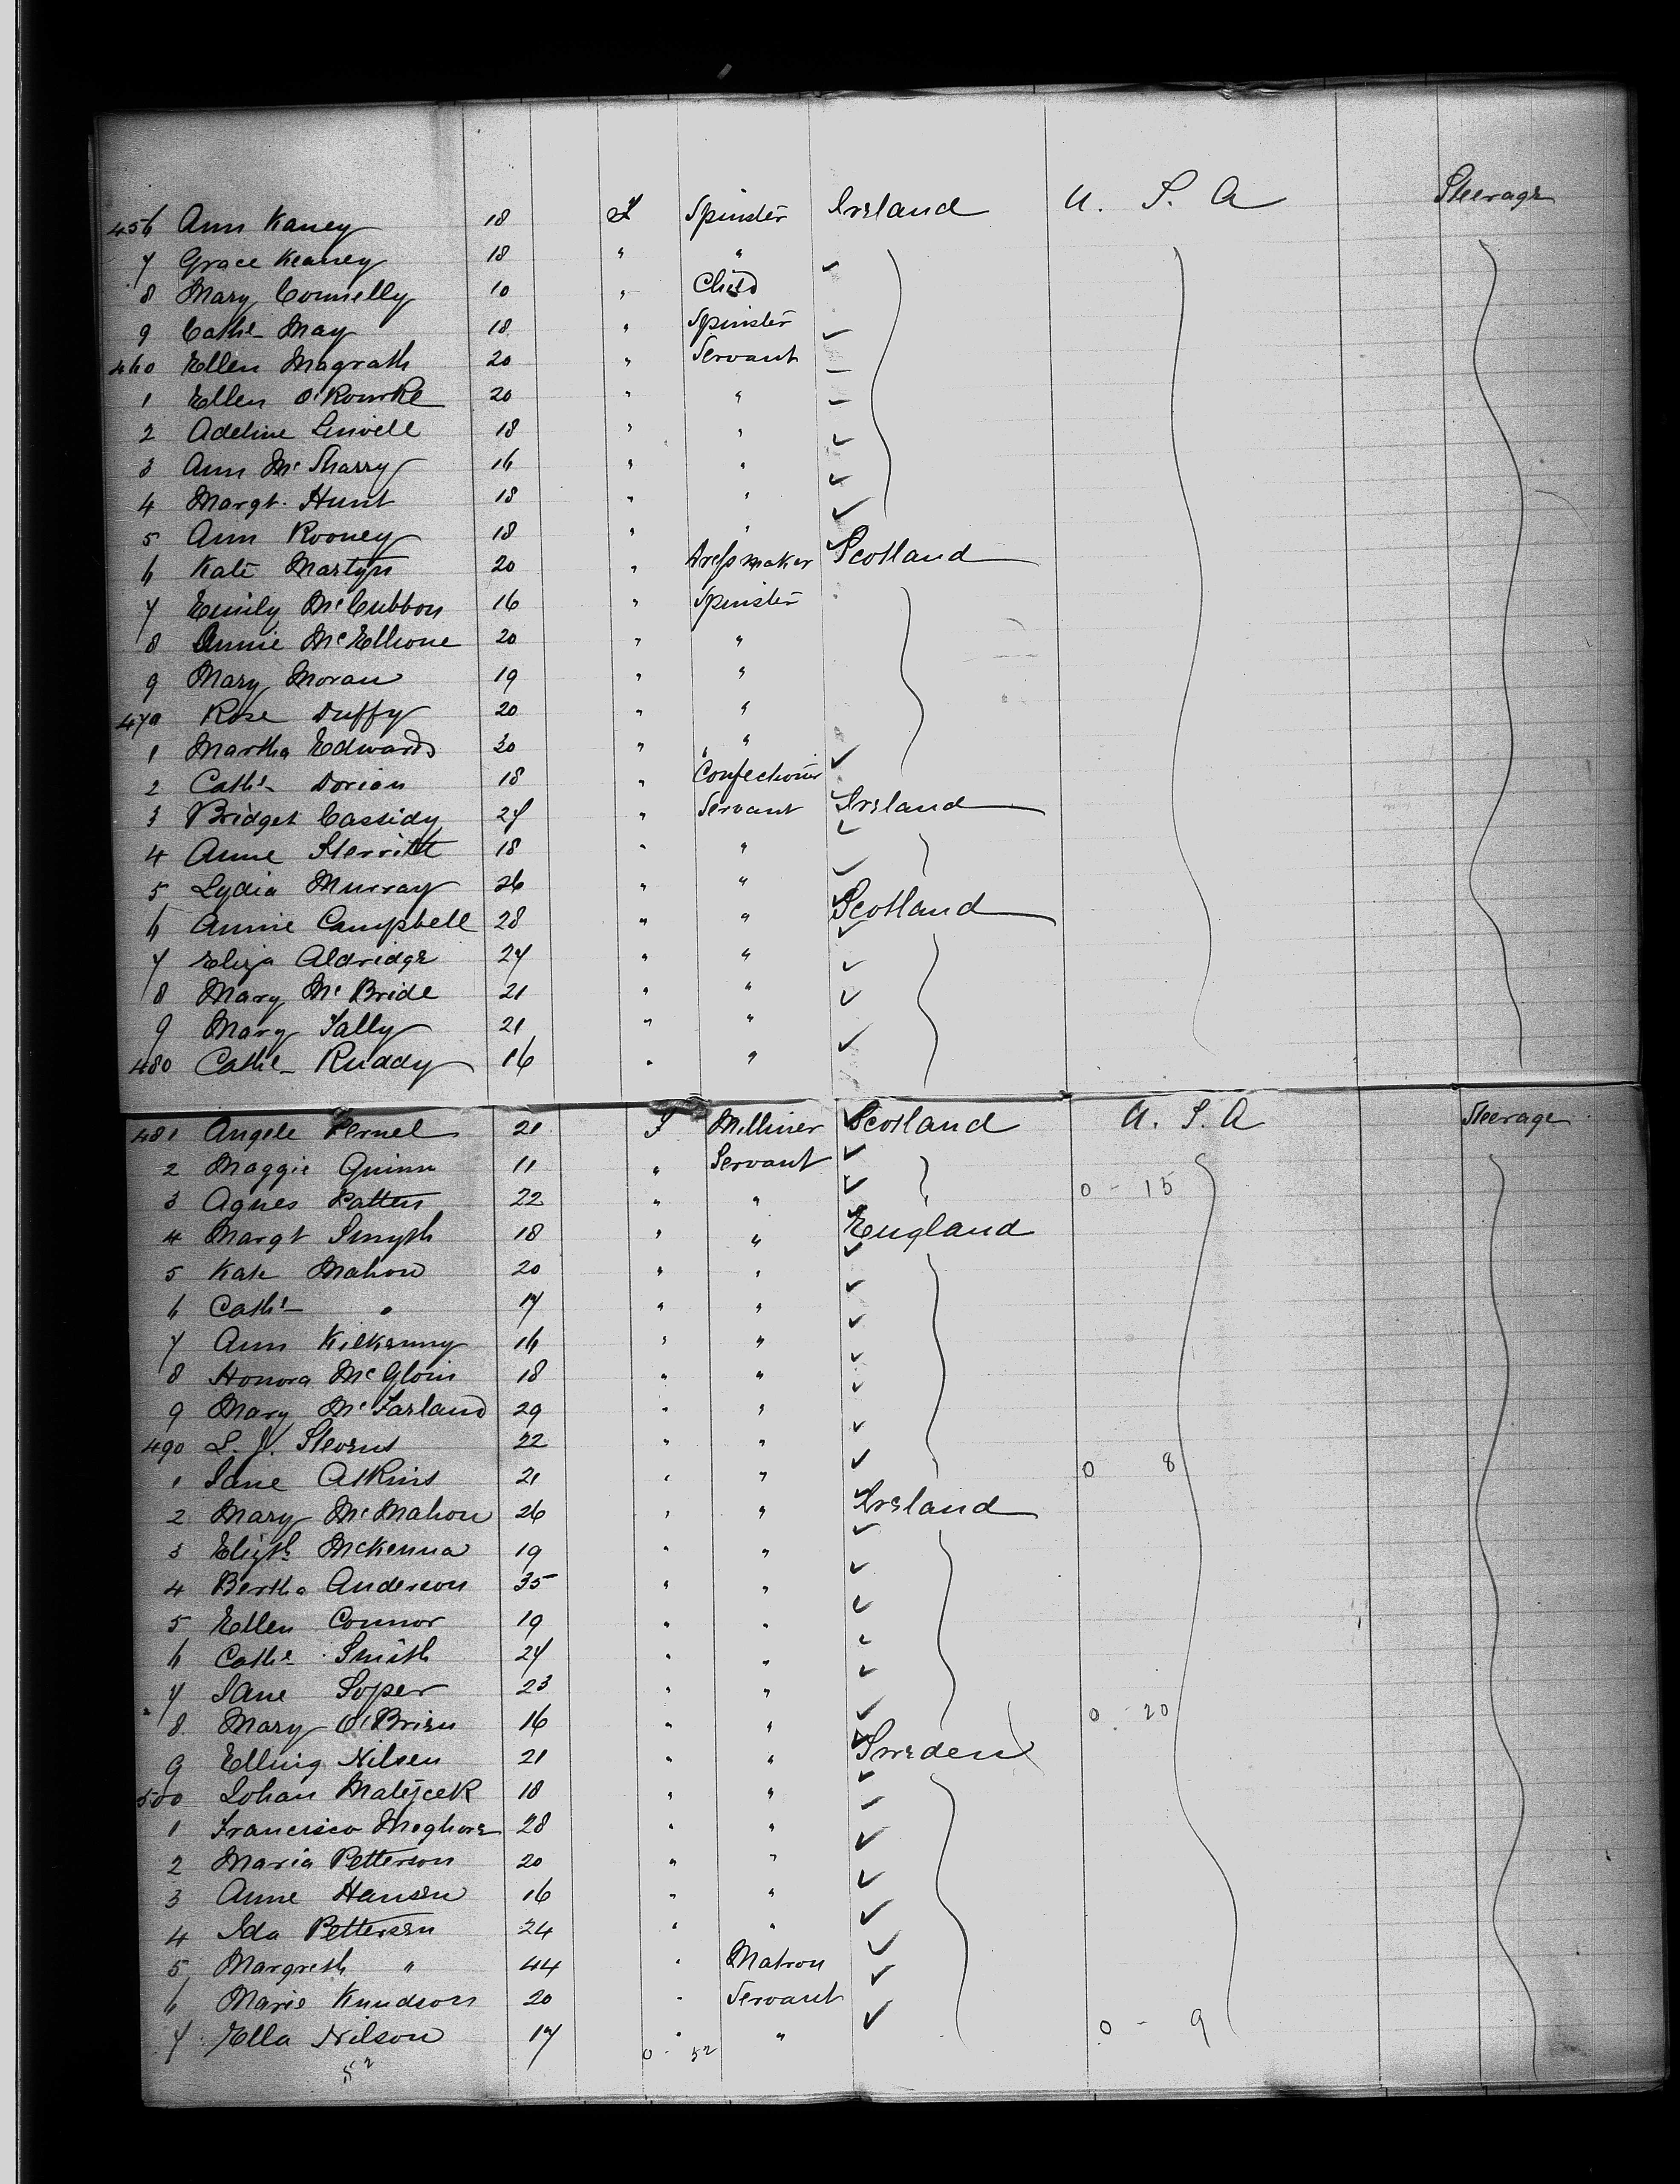 456 Ann Kaney 18 F Spinster Ireland U. S. A Steerage
7 Grace Keaney 18 " "
8 Mary Connelly 10 " Child
9 Cathe May 18 " Spinster
460 Ellen Magrath 20 " Servant
1 Ellen O'Rourke 20 " "
2 Adeline 18 " "
3 Ann McSharry 16 " "
4 Margt. Hunt 18 " "
5 Ann Rooney 18 " "
6 Kate Martyn 20 " Dressmaker Scotland
7 Emily McCubbon 16 " Spinster
8 Annie McElhone 20 " "
9 Mary Moran 19 " "
470 Rose Duffy 20 " "
1 Martha Edwards 20 " "
2 Cathe Dorian 18 " Confectioner
3 Bridget Cassidy 27 " Servant Ireland
4 Anne Sterritt 18 " "
5 Lydia Murray 26 " "
6 Annie Campbell 28 " " Scotland
7 Eliza Aldridge 27 " "
8 Mary McBride 21 " "
9 Mary Tally 21 " "
480 Cathe Ruddy 16 " "
481 Angele Pernel 21 F Milliner Scotland U. S. A Steerage
2 Maggie Quinn 11 " Servant
3 Agnes Patten 22 " " 0 - 15
4 Margt Smyth 18 " " England
5 Kate Mahon 20 " "
6 Cathe " 17 " "
7 Ann Kilkenny 16 " "
8 Honora McGloin 18 " "
9 Mary McFarland 29 " "
490 S. J. Stevens 22 " "
1 Jane Atkins 21 " " 0 8
2 Mary McMahon 26 " " Ireland
3 Elizth McKenna 19 " "
4 Bertha Anderson 35 " "
5 Ellen Connor 19 " "
6 Cathe Smith 27 " "
7 Jane Soper 23 " "
8 Mary O'Brien 16 " " 0 - 20
9 Elling Nilsen 21 " " Sweden
500 Johan Matejcek 18 " "
1 Francisco 28 " "
2 Maria Petterson 20 " "
3 Anne Hansen 16 " "
4 Ida Pettersen 24 " "
5 Margreth " 44 " Matron
6 Marie Knudson 20 " Servant
7 Ella Nilson 17 " " 0 - 9
52 0 - 52